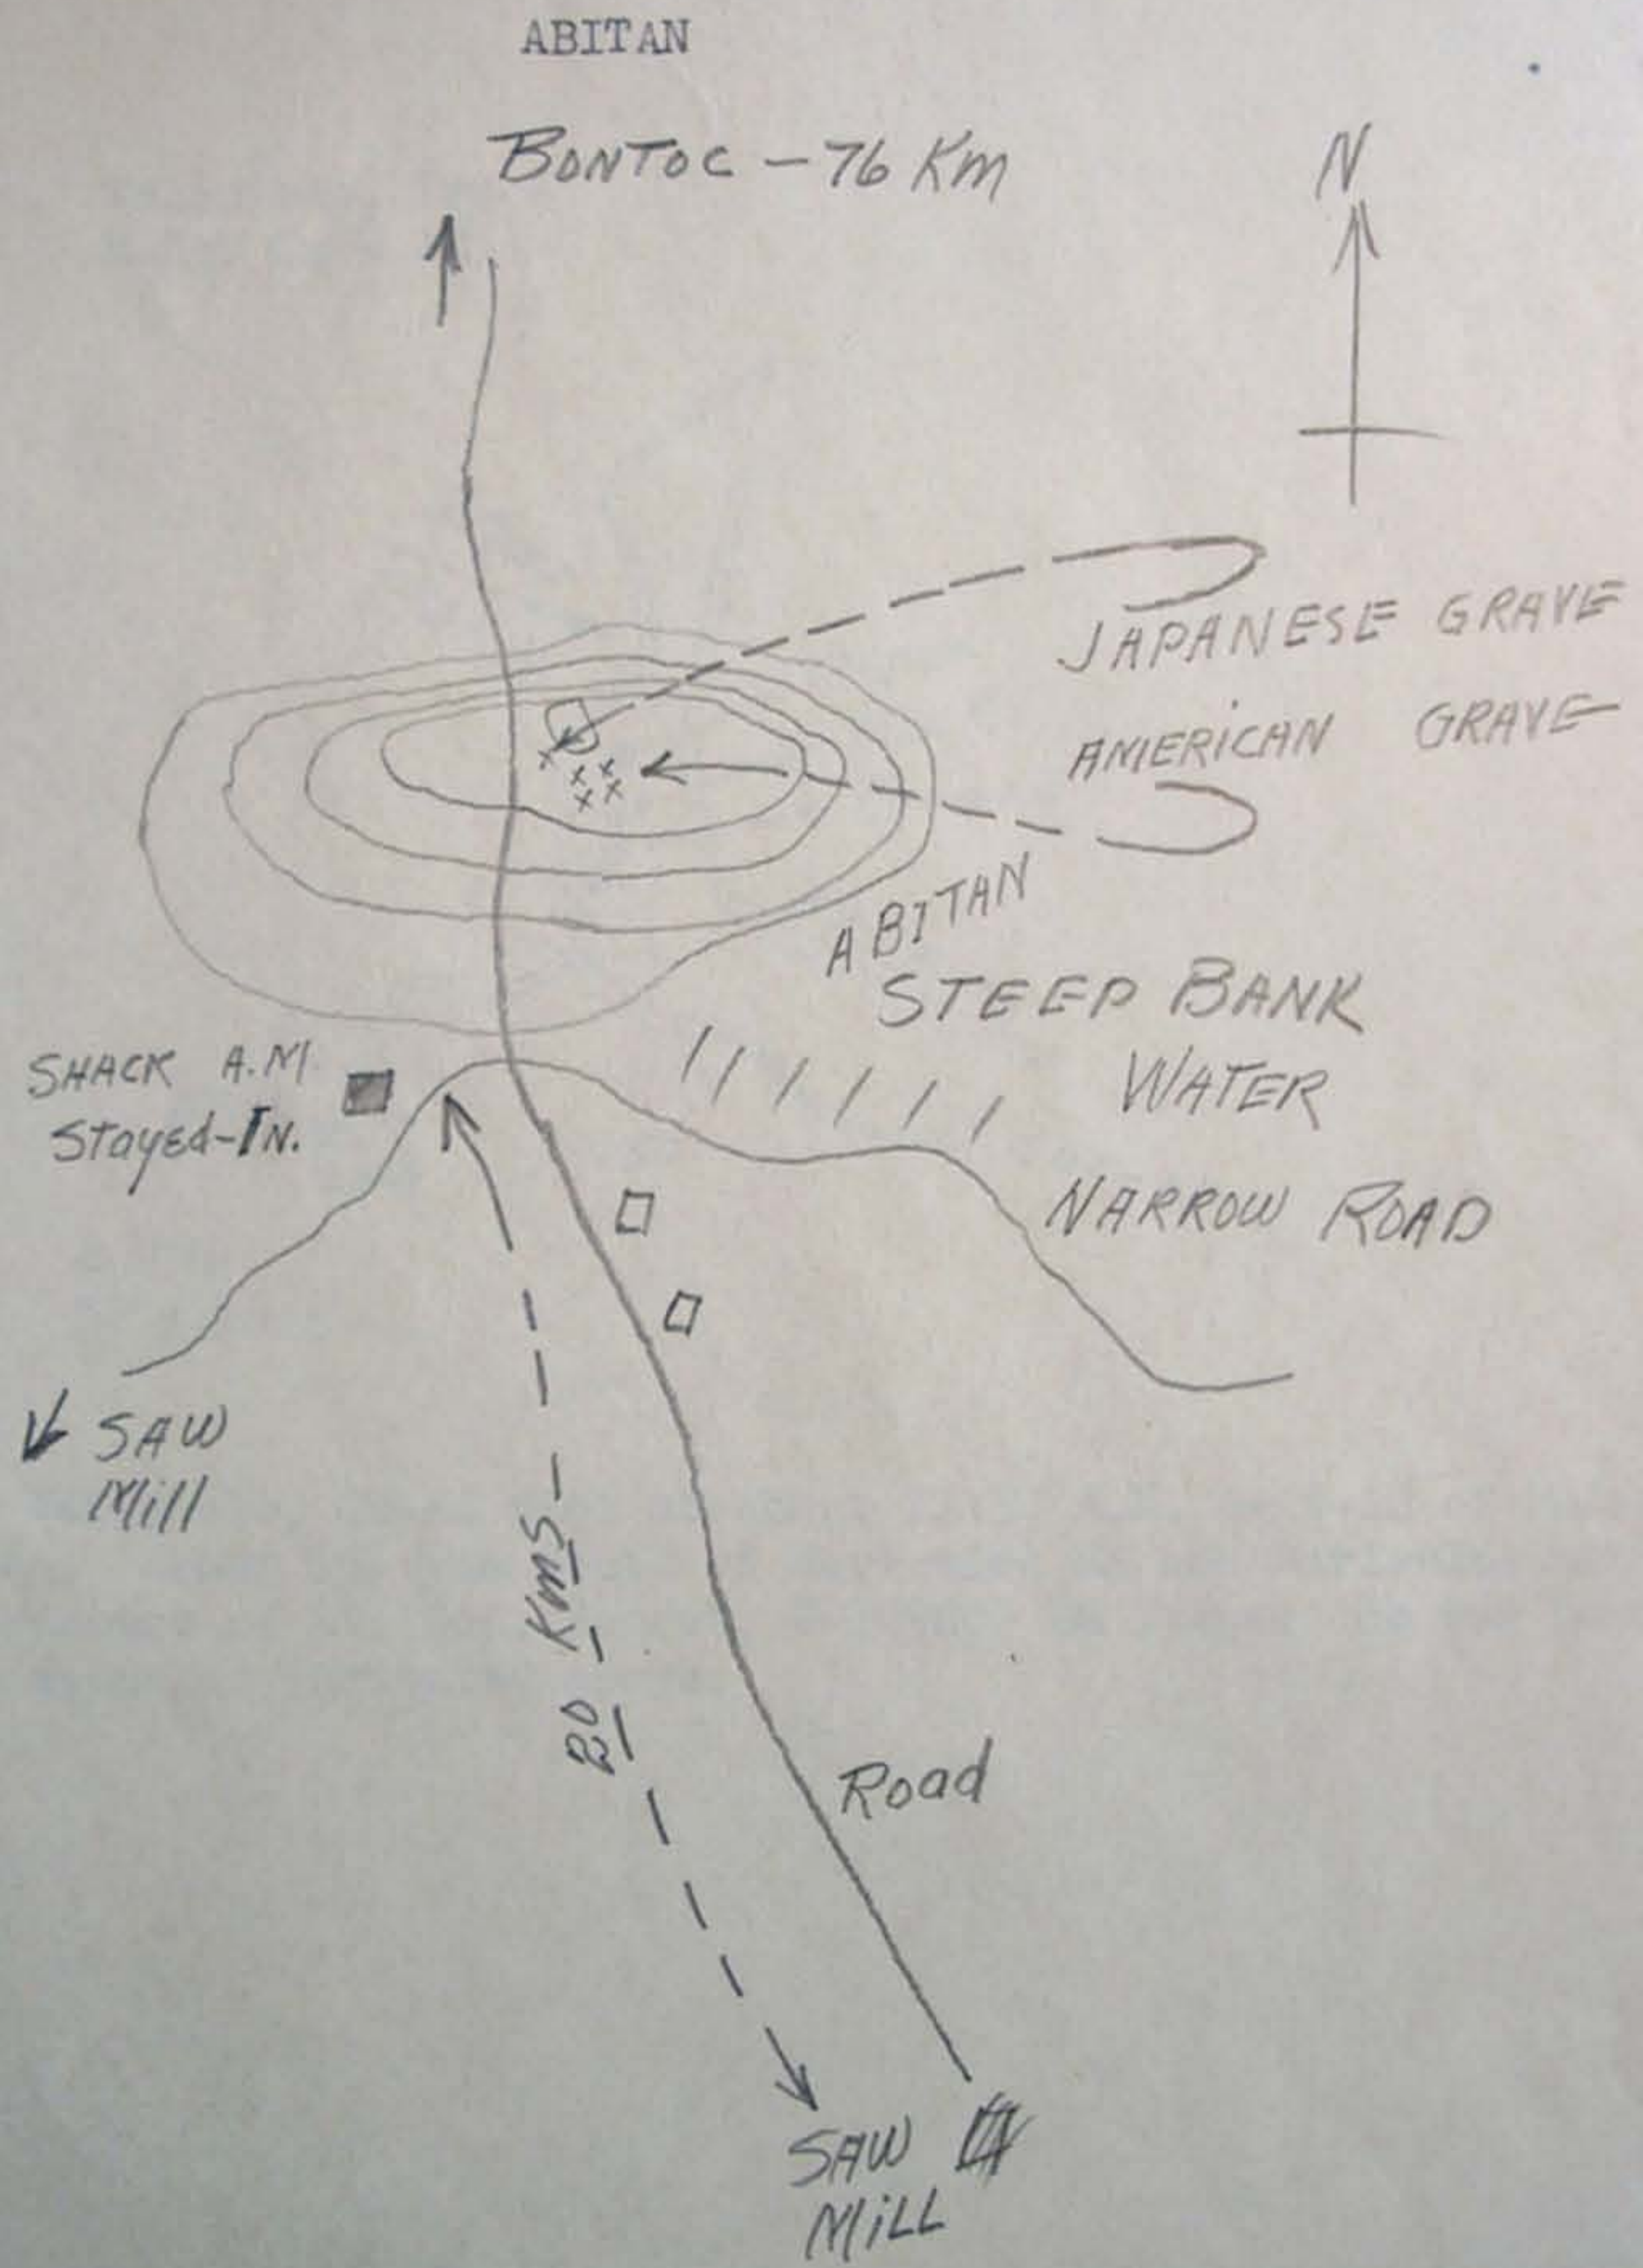 ABITAN
BONTOC - 76 Km
N
JAPANESE GRAVE
AMERICAN GRAVE
ABITAN
STEEP BANK
WATER
SHACK A.M
Stayed-IN.
NARROW ROAD
SAW
Mill
20 KmS
Road
SAW
MiLL